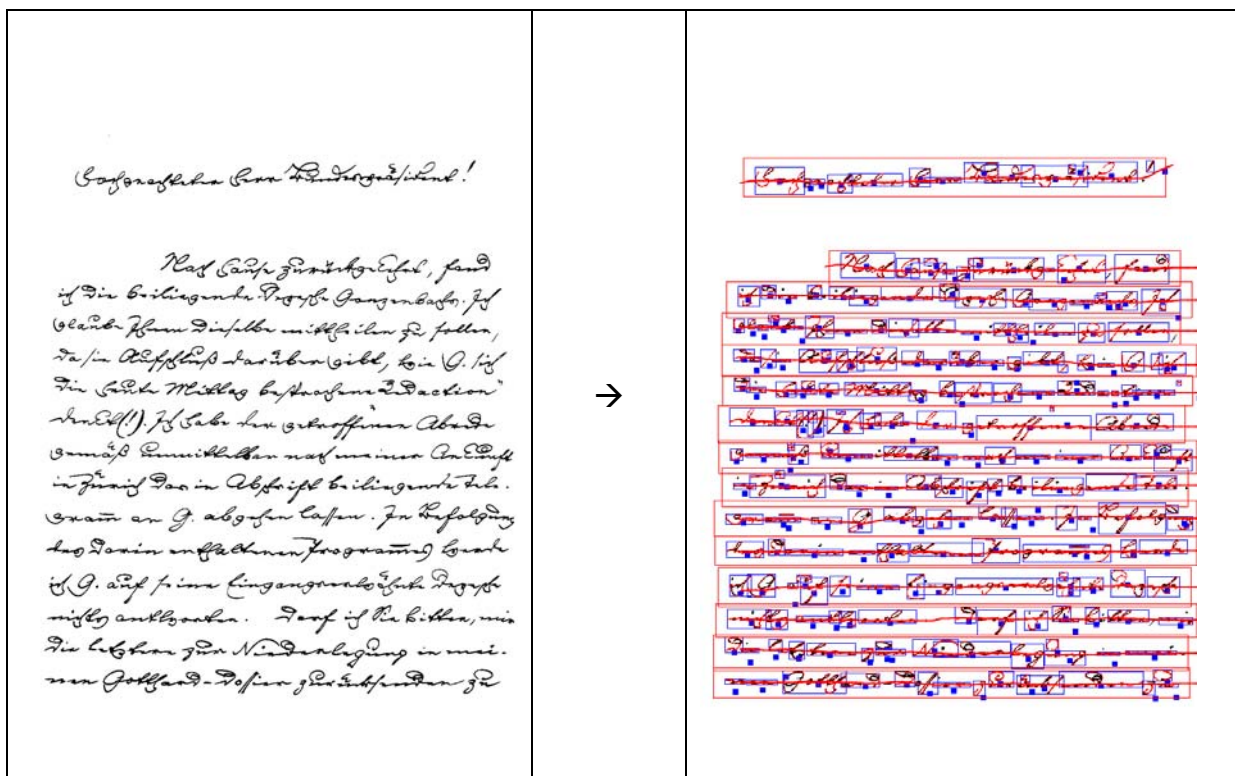 Hochgeachteter Herr Bundespräsident!
Nach Hause zurückgekehrt, fand
ich die beiliegende Depesche Gonzenbachs. Ich
glaube Ihnen dieselbe mittheilen zu sollen,
da sie Aufschluß darüber gibt, wie G. sich
die heute Mittag besprochene „Redaction"
denkt(!). Ich habe der getroffenen Abrede
gemäß unmittelbar nach meiner Ankunft
in Zürich das in Abschrift beiliegende Tele-
gramm an G. abgehen lassen. In Befolgung
des darin enthaltenen Programmes werde
ich G. auf seine Eingangs erwähnte Depesche
nichts antworten. Darf ich Sie bitten, mir
die letztere zur Niederlegung in mei-
nen Gotthard-Dossier zurücksenden zu
→